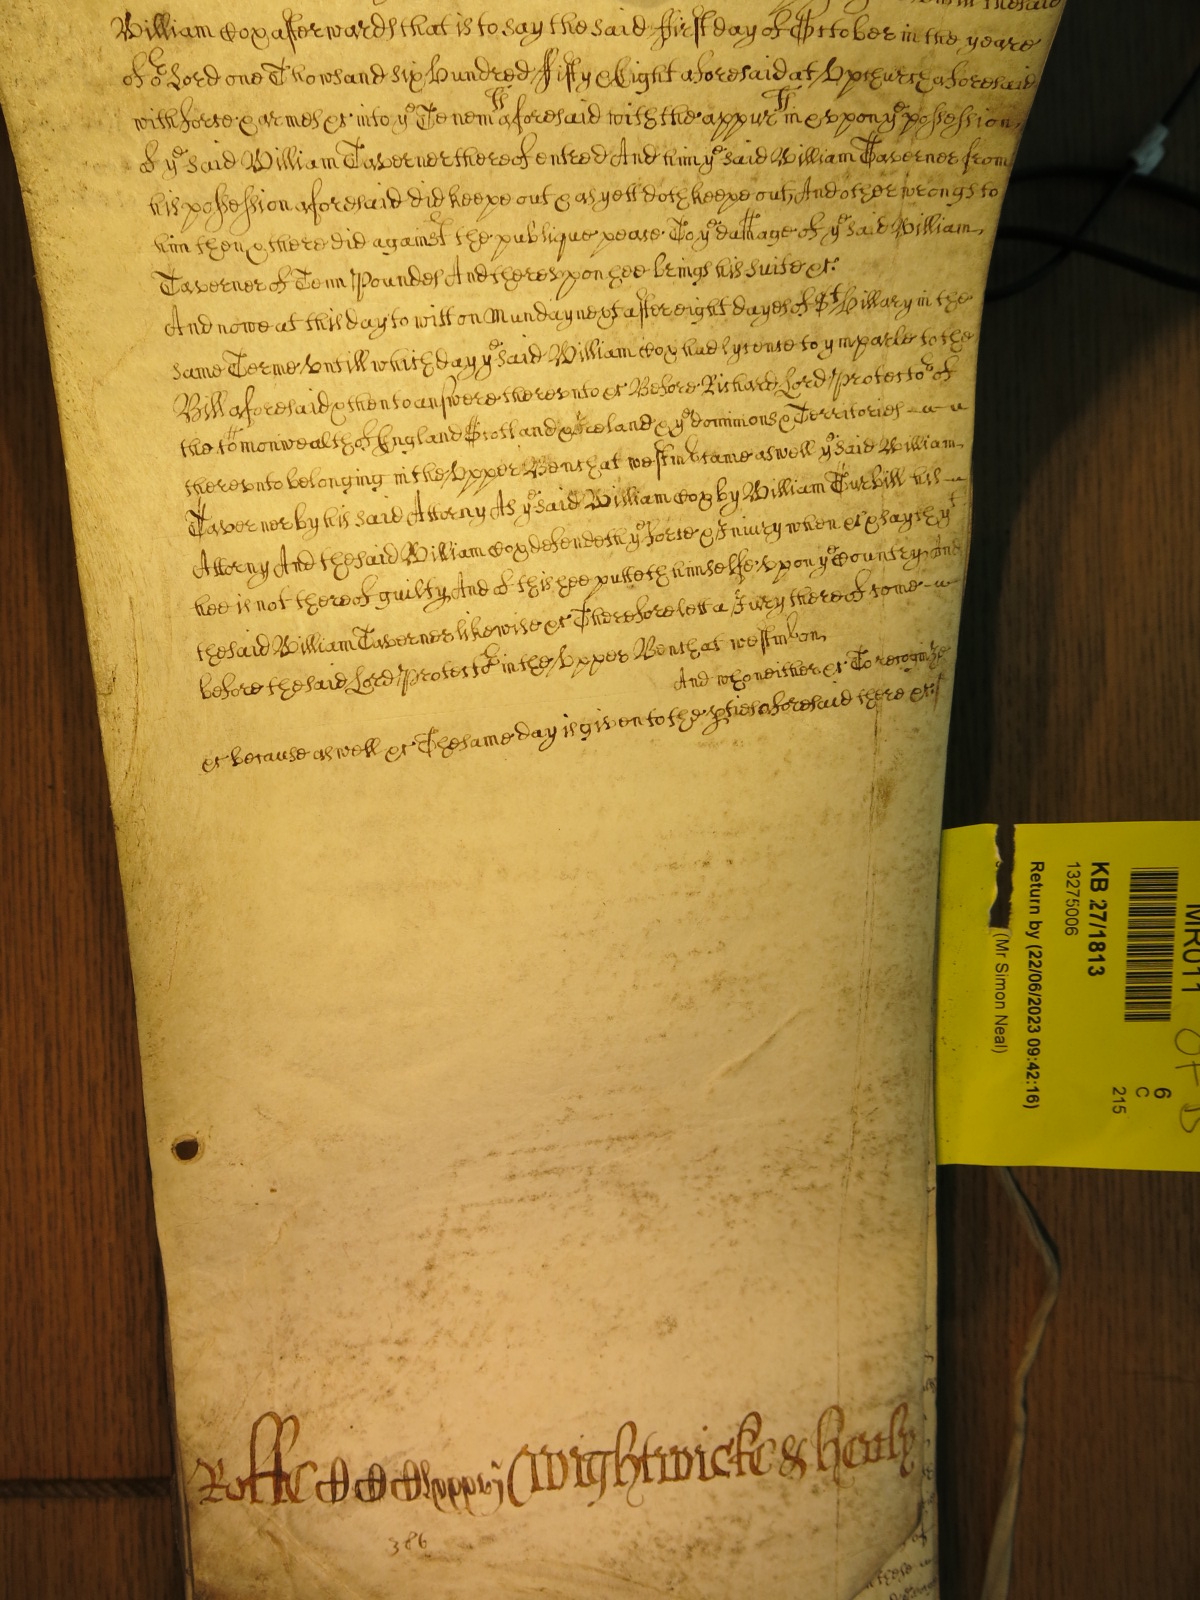 thesaid
William Cox afterwards that is to say the said first day of October in the yeare
of or Lord one Thousand six hundred fifty & Eight aforesaid at Upchurch aforesaid
with force & armes &c into ye Tenemts aforesaid with the appurts in & vpon ye possession
of ye said William Taverner thereof entred And him ye said William Taverner from
his possession aforesaid did keepe out & as yett doth keepe out, And other wrongs to
him then & there did against the publique peace To ye damage of ye said William
Taverner of Tenn Poundes And therevpon hee brings his suite &c:
And nowe at this day to witt on Munday next after eight dayes of St Hillary in the
same Terme vntill which day ye said William Cox had lycense to ymparle to the
Bill aforesaid & then to answere therevnto &c Before Richard Lord Protector of
the Comonwealth of England Scotland & Ireland & ye dominions & Territories
therevnto belonging in the Vpper Bench at westmr came aswell ye said William
Taverner by his said Attorny As ye said William Cox by William Turbill his
Attorny And the said William Cox defendeth ye force & Iniury when &c & sayth yt
hee is not thereof guilty, And of this hee putteth himselfe vpon ye Country, And
the said William Taverner likewise &c Therefore lett a Jury thereof come
before the said Lord Protector in the Vpper Bench at westmr on
And who neither &c To recognize
&c because aswell &c The same day is given to the pties aforesaid there &c:
Roffe Wightwicke & Henly
386
MR011
KB 27/1813
13275006
Return by (22/06/2023 09:42:16)
(Mr Simon Neal)
6
C
215